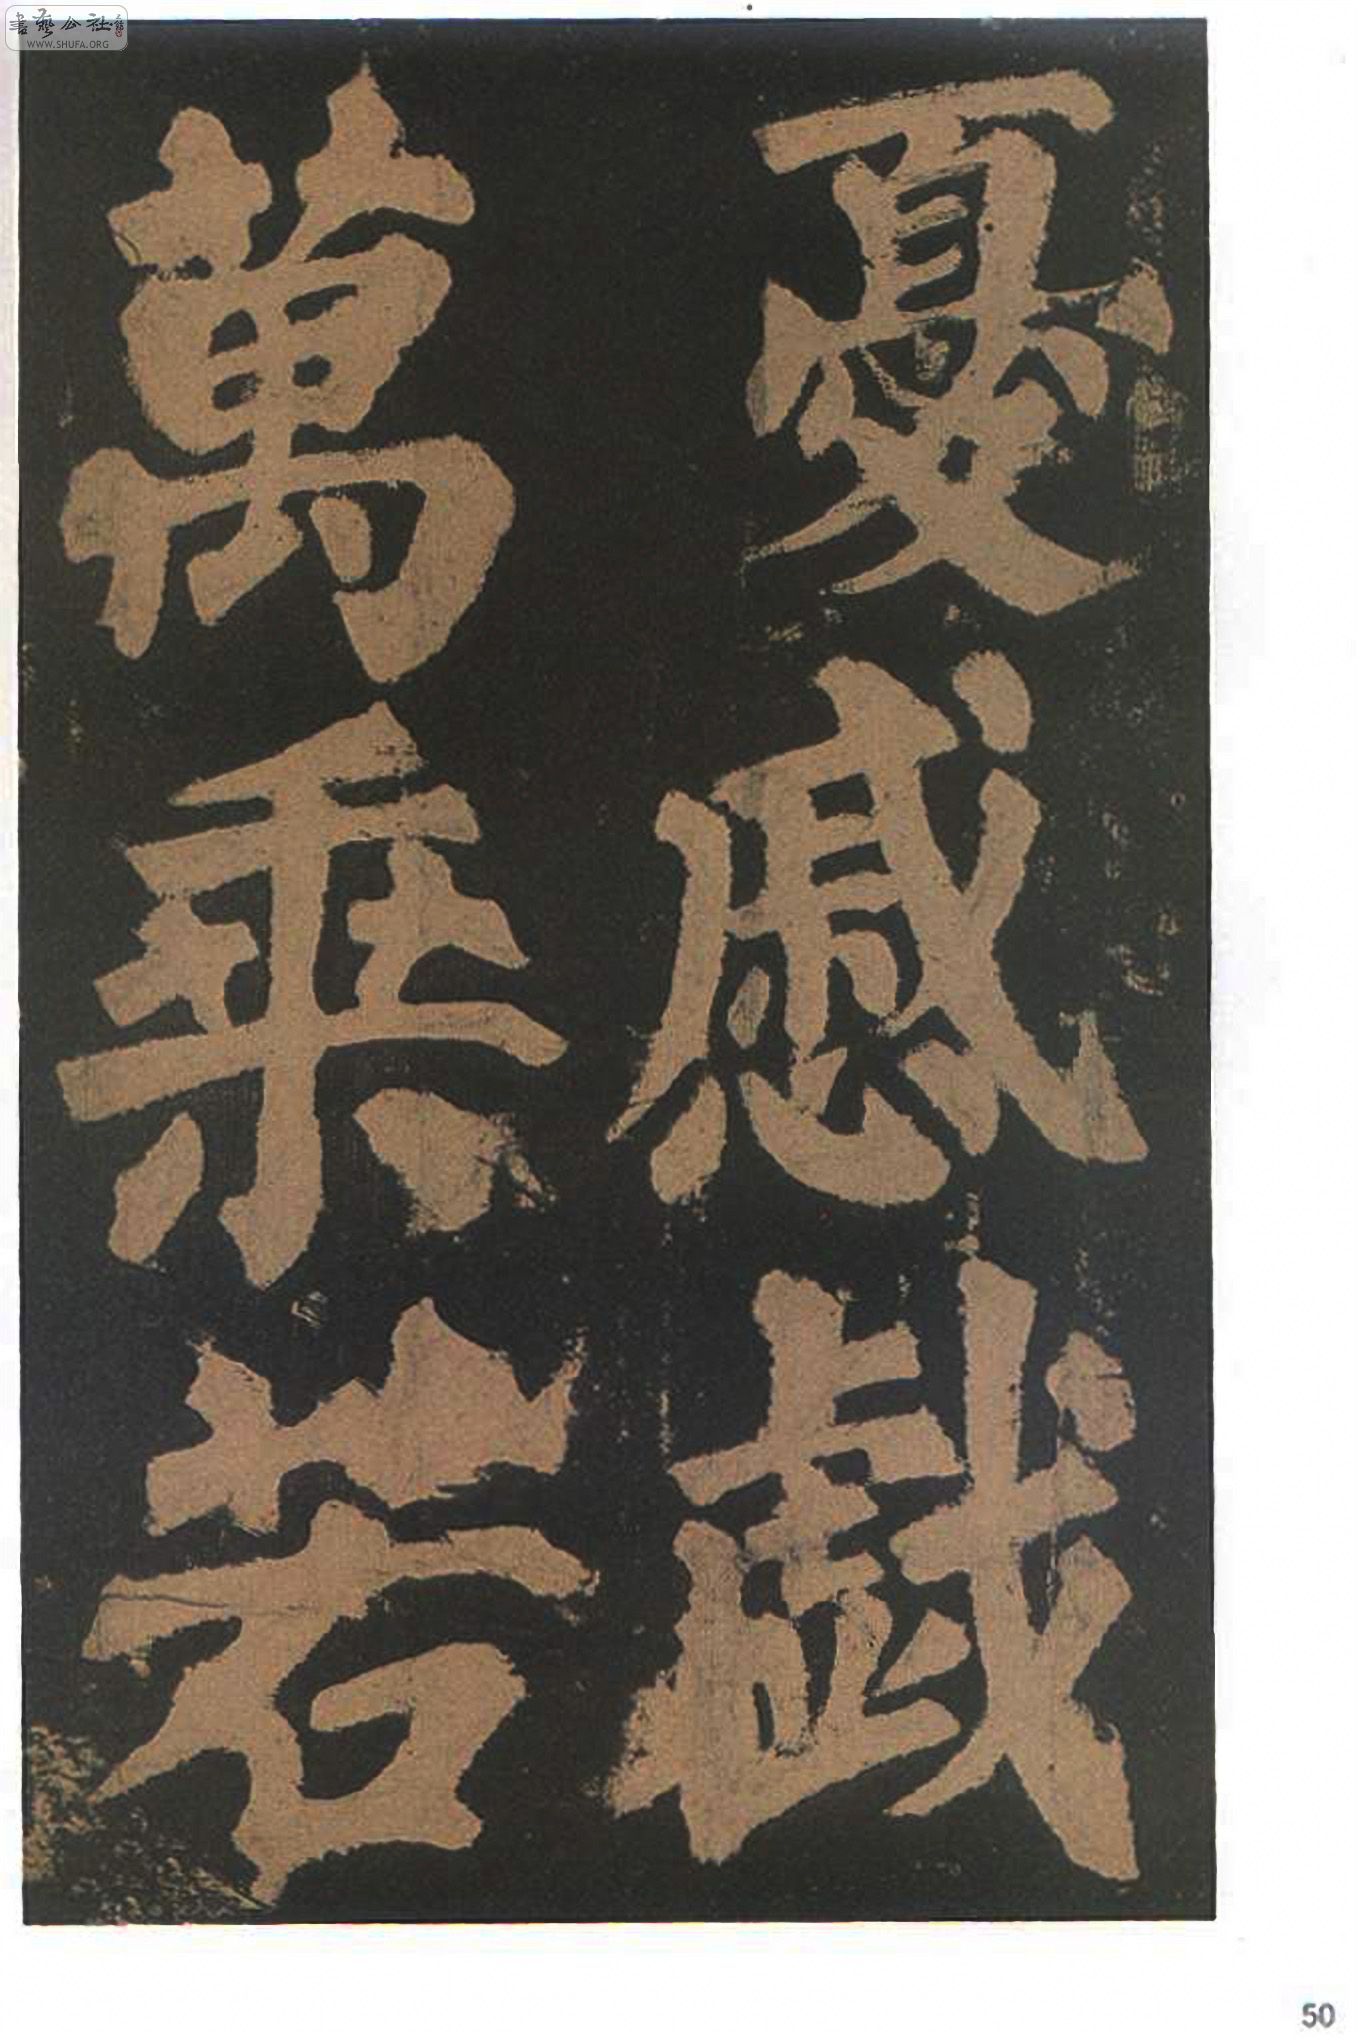 憂感戲
萬乘若
書藝公社
WWW.SHUFA.ORG
50